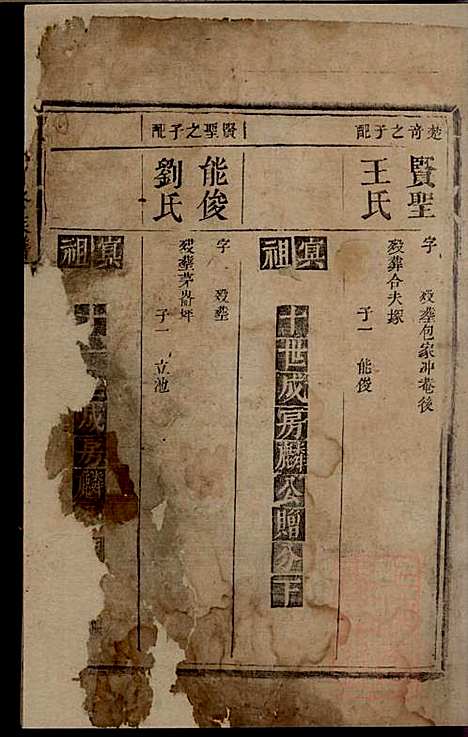 楚奇之子配
賢聖
字 歿塟包家冲菴後
王氏
歿葬合夫塚
子一 能俊
賢聖之子配
寘祖
十世成房麟公贈公下
能俊
字 歿塟
劉氏
歿塟茅嵓坪
子一 立池
寘祖
成房麟